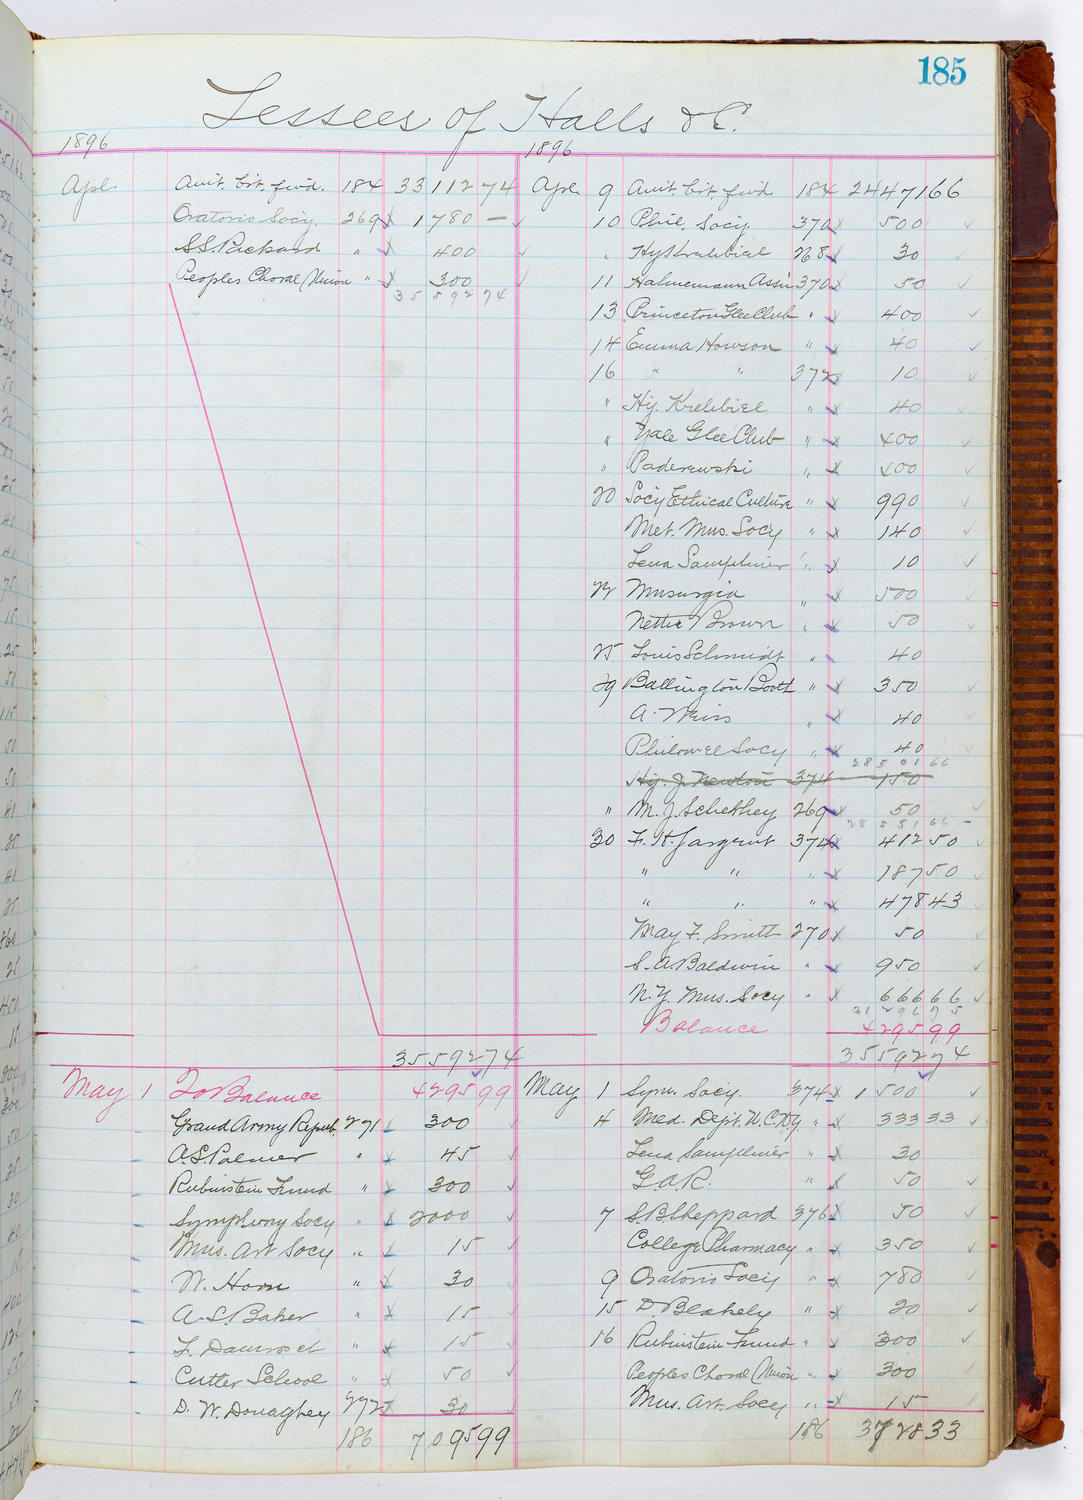 185
Lessees of Halls &c.
1896
Apl. Amt. brt. fwd. 184 33112 74
Oratorio Socy. 269 1780 —
S.S. Packard " 400
Peoples Choral Union " 300
35592 74
35592 74
May 1 To Balance 4295 99
Grand Army Repub. 271 300
A.S. Palmer " 45
Rubinstein Fund " 300
Symphony Socy " 2000
Mus. Art Socy " 15
W. Horn " 30
A.S. Baker " 15
F. Damrosch " 15
Cutter School " 50
D. W. Donaghey 272 30
186 7095 99
1896
Apl. 9 Amt. brt. fwd 184 24471 66
10 Phil. Socy. 370 500
" Hy Krehbiel 268 30
11 Hahnemann Assn 370 50
13 Princeton Glee Club " 400
14 Emma Howson " 40
16 " " 372 10
" Hy. Krehbiel " 40
" Yale Glee Club " 400
" Paderewski " 400
20 Socy Ethical Culture " 990
Met. Mus. Socy " 140
Lena Samphner " 10
22 Musurgia " 500
Nettie Brown " 50
25 Louis Schmidt " 40
29 Ballington Booth " 350
A. Weiss " 40
Philomel Socy " 40
28501 66
Hy. J. Newton 374 150
" M. J. Scherhey 269 50
28551 66
30 F. H. Sargent 374 412 50
" " " 187 50
" " " 478 43
May F. Smith 270 50
S. A. Baldwin " 950
N.Y. Mus. Socy " 666 66
31296 75
Balance 4295 99
35592 74
May 1 Sym. Socy. 374 1500
4 Med. Dept. U.C.N.Y. " 333 33
Lena Samphner " 30
G.A.R. " 50
7 S.B. Sheppard 376 50
College Pharmacy " 350
9 Oratorio Socy " 780
15 D Blakely " 20
16 Rubinstein Fund " 300
Peoples Choral Union " 300
Mus. Art. Socy " 15
186 3728 33